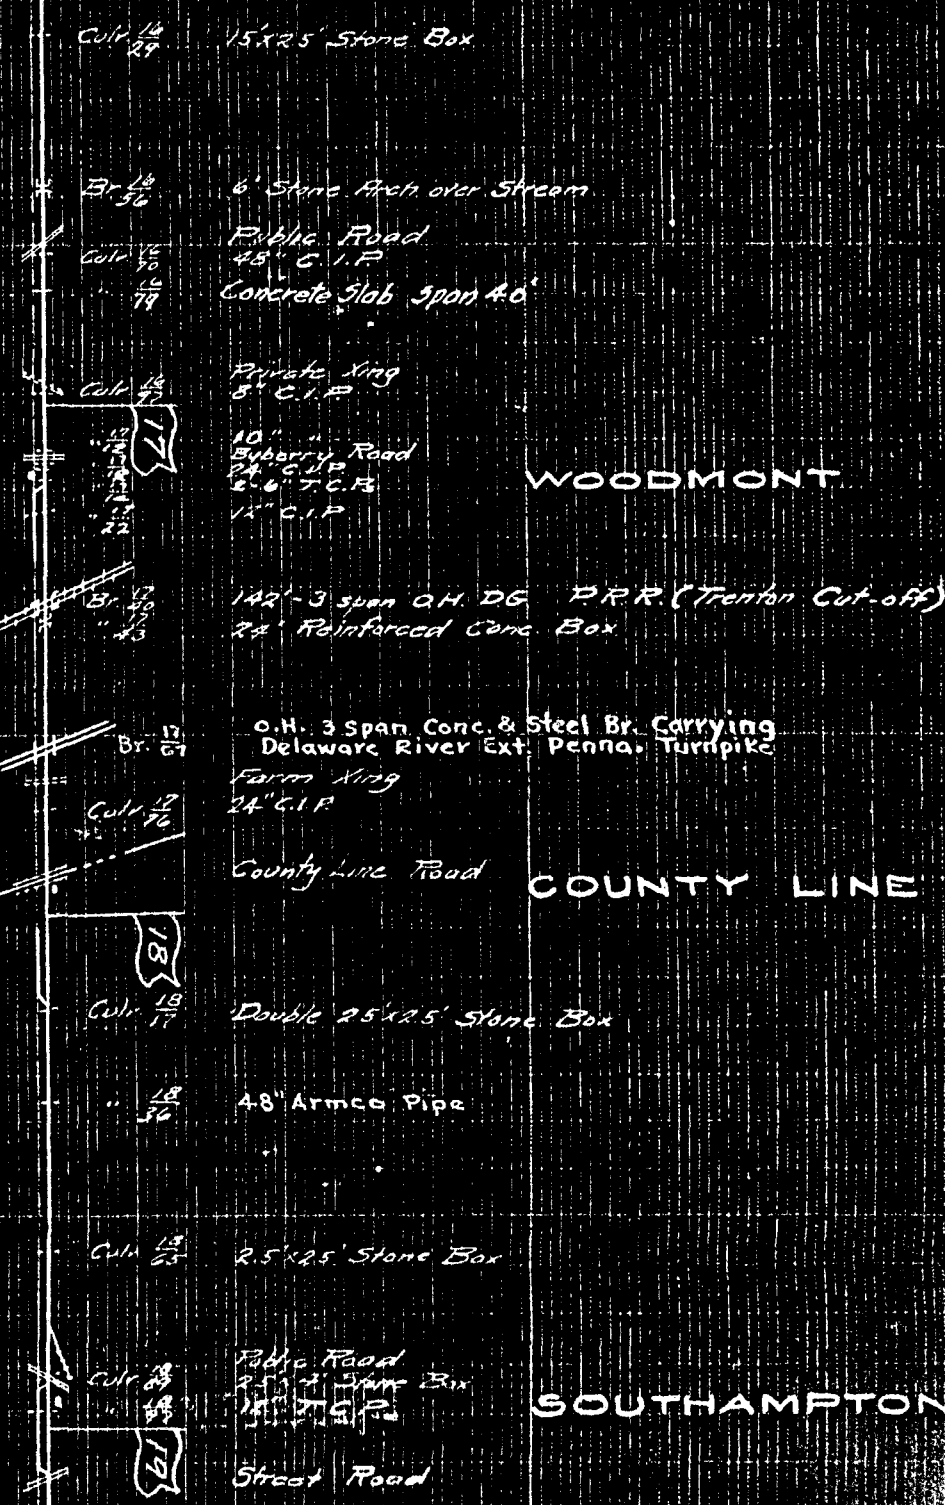 Culv. 16/29 15'x25' Stone Box
Br. 16/56 6' Stone Arch over Stream
Public Road
Culv. 16/70 48" C.I.P.
" 16/79 Concrete Slab Span 4.0'
Private Xing
Culv. 16/97 8" C.I.P.
17
10" "
Byberry Road
24" C.I.P.
T.C.P.
" 17/22 12" C.I.P.
WOODMONT
Br. 17/40 142'-3 span O.H. D.G. P.R.R. (Trenton Cut-off)
" 17/43 24' Reinforced Conc. Box
O.H. 3 Span Conc. & Steel Br. Carrying
Br. 17/67 Delaware River Ext. Penna. Turnpike
Farm Xing
Culv. 17/76 24" C.I.P.
County Line Road
COUNTY LINE
18
Culv. 18/17 Double 2.5'x2.5' Stone Box
" 18/36 48" Armco Pipe
Culv. 18/65 2.5'x2.5' Stone Box
Public Road
Culv. 2.5'x4' Stone Box
" T.C.P.
SOUTHAMPTON
19
Street Road